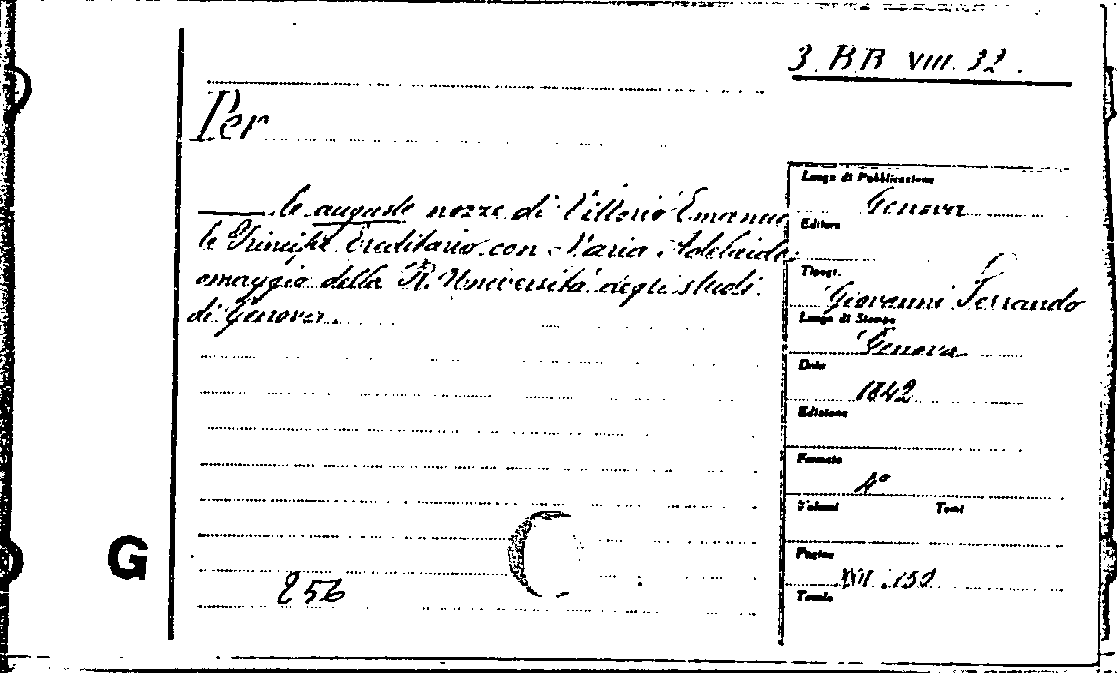 3. BB VIII. 32.
Per
le auguste nozze di Vittorio Emanue
le Principe Ereditario con Maria Adelaide,
omaggio della R. Università degli studi
di Genova.
256
G
Luogo di Pubblicazione
Genova
Editore
Tipogr.
Giovanni Ferrando
Luogo di Stampa
Genova
Data
1842
Edizione
Formato
4°
Volumi Tomi
Pagine
XVII. 152
Tavole